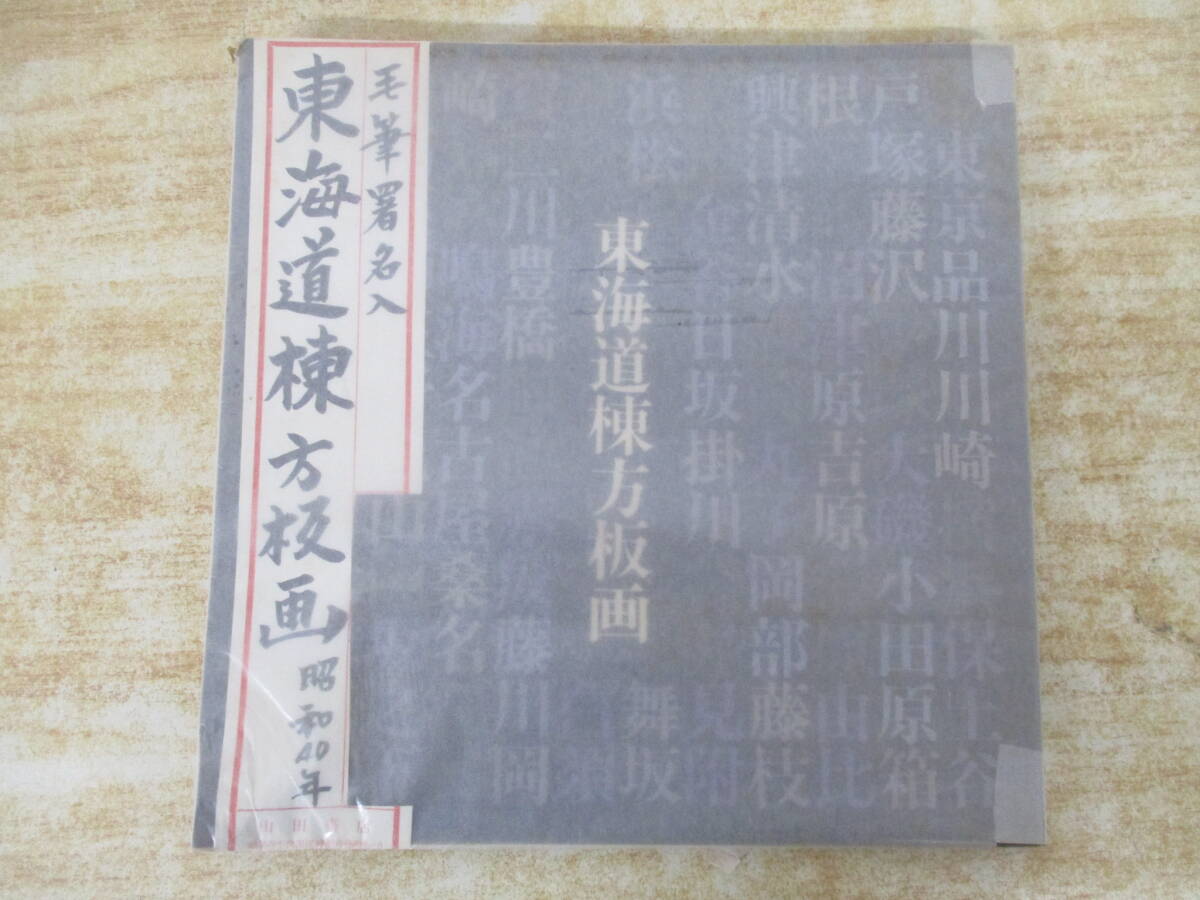 東京品川川崎 保土谷
戸塚藤沢 大磯小田原箱
根 沼津原吉原 由比
興津清水 丸子岡部藤枝
金谷日坂掛川 見附
浜松 舞坂
東海道棟方板画
新
二川豊橋 藤川岡
崎 鳴海名古屋桑名
毛筆署名入
東海道棟方板画 昭和40年
山田書店